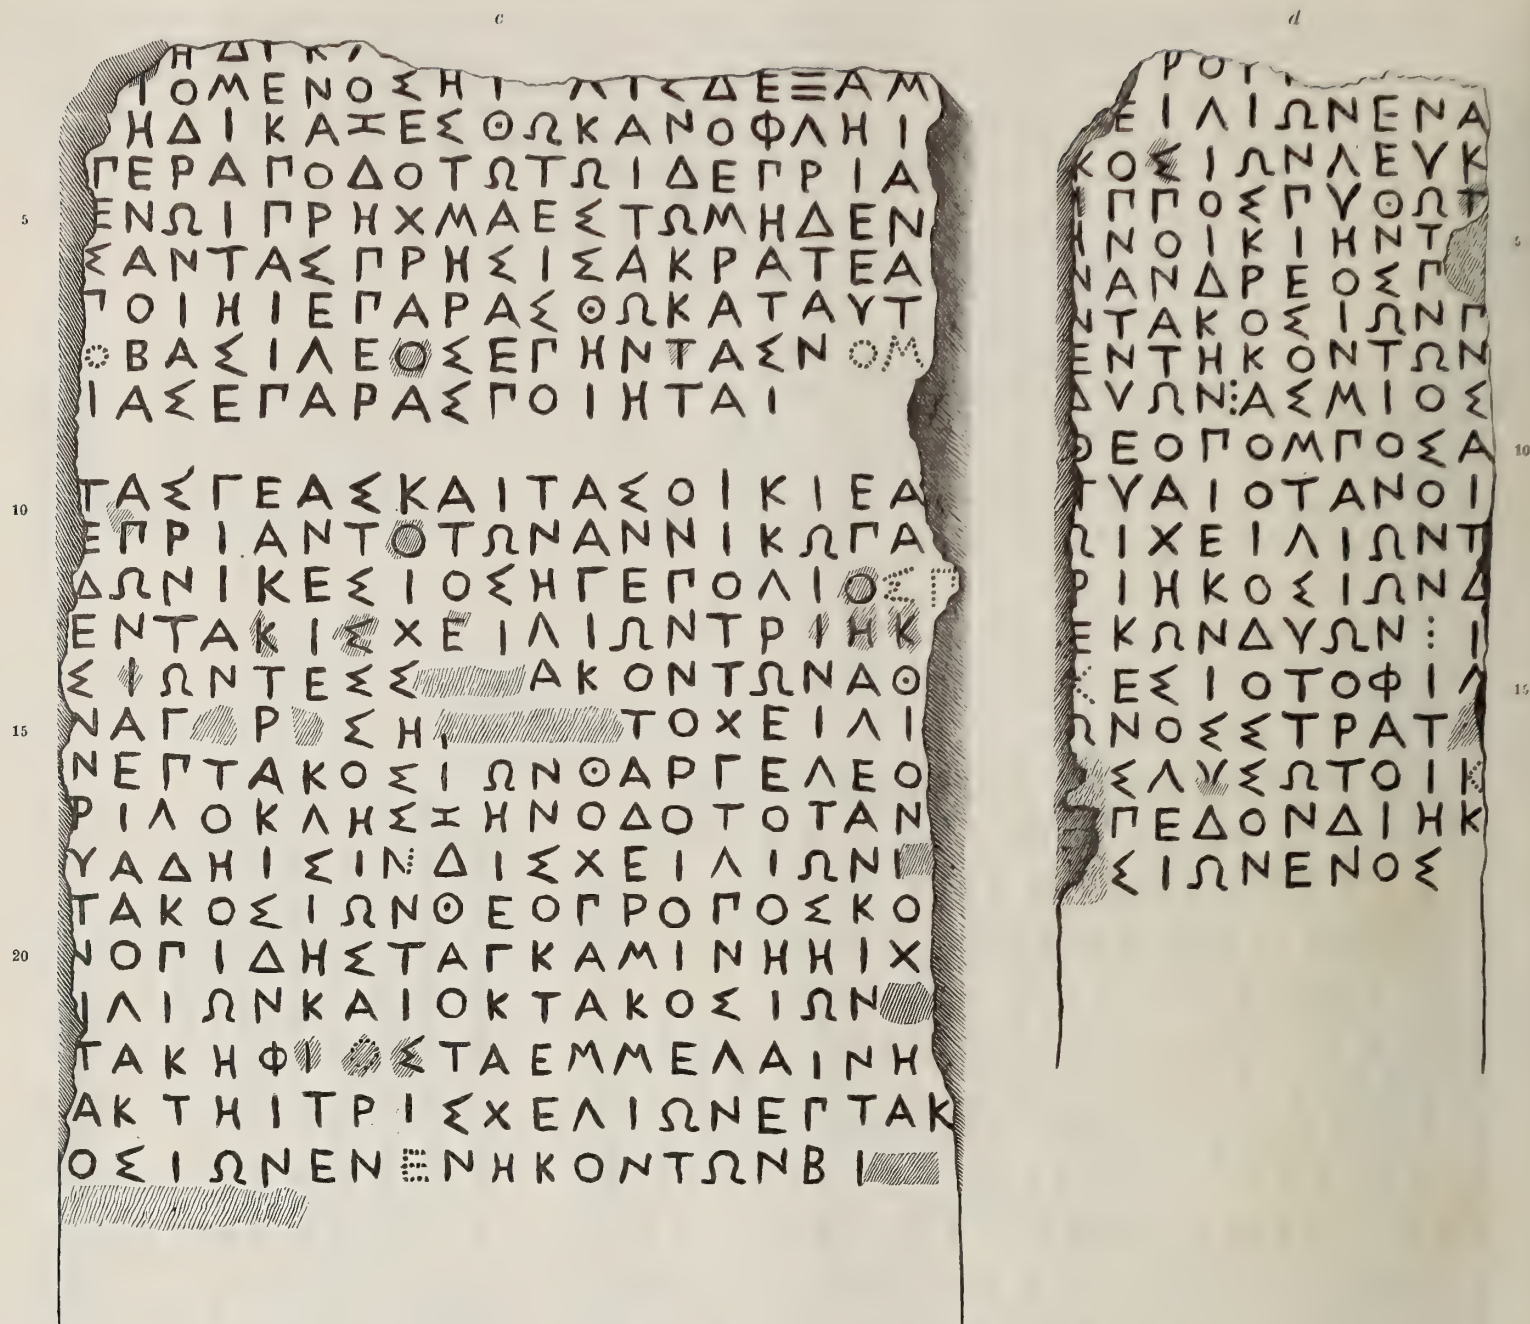 c
ΗΔΙΚ
ΤΟΜΕΝΟΣΗΤ ΛΙΣΔΕΞΑΜ
ΗΔΙΚΑΖΕΣΘΩΚΑΝΟΦΛΗΙ
ΠΕΡΑΠΟΔΟΤΩΤΩΙΔΕΠΡΙΑ
5 ΕΝΩΙΠΡΗΧΜΑΕΣΤΩΜΗΔΕΝ
ΣΑΝΤΑΣΠΡΗΣΙΣΑΚΡΑΤΕΑ
ΠΟΙΗΙΕΠΑΡΑΣΘΩΚΑΤΑΥΤ
ΟΒΑΣΙΛΕΟΣΕΠΗΝΤΑΣΝΟΜ
ΙΑΣΕΠΑΡΑΣΠΟΙΗΤΑΙ
10 ΤΑΣΓΕΑΣΚΑΙΤΑΣΟΙΚΙΕΑ
ΕΠΡΙΑΝΤΟΤΩΝΑΝΝΙΚΩΠΑ
ΔΩΝΙΚΕΣΙΟΣΗΓΕΠΟΛΙΟΣΠ
ΕΝΤΑΚΙΣΧΕΙΛΙΩΝΤΡΙΗΚ
ΣΙΩΝΤΕΣΣ ΑΚΟΝΤΩΝΑΘ
15 ΝΑΓ Ρ ΣΗ ΤΟΧΕΙΛΙ
ΝΕΠΤΑΚΟΣΙΩΝΘΑΡΓΕΛΕΟ
ΡΙΛΟΚΛΗΣΖΗΝΟΔΟΤΟΤΑΝ
ΥΑΔΗΙΣΙΝ⁝ΔΙΣΧΕΙΛΙΩΝΙ
ΤΑΚΟΣΙΩΝΘΕΟΠΡΟΠΟΣΚΟ
20 ΝΟΠΙΔΗΣΤΑΓΚΑΜΙΝΗΗΙΧ
ΙΛΙΩΝΚΑΙΟΚΤΑΚΟΣΙΩΝ
ΤΑΚΗΦΙΟΣΤΑΕΜΜΕΛΑΙΝΗ
ΑΚΤΗΙΤΡΙΣΧΕΛΙΩΝΕΠΤΑΚ
ΟΣΙΩΝΕΝΕΝΗΚΟΝΤΩΝΒΙ
d
ΡΟΥ
ΕΙΛΙΩΝΕΝΑ
ΚΟΣΙΩΝΛΕΥΚ
ΙΠΠΟΣΠΥΘΩΤ
5 ΗΝΟΙΚΙΗΝΤ
ΝΑΝΔΡΕΟΣΠ
ΝΤΑΚΟΣΙΩΝΠ
ΕΝΤΗΚΟΝΤΩΝ
ΔΥΩΝ⁝ΑΣΜΙΟΣ
10 ΘΕΟΠΟΜΠΟΣΑ
ΤΥΑΙΟΤΑΝΟΙ
ΩΙΧΕΙΛΙΩΝΤ
ΡΙΗΚΟΣΙΩΝΔ
ΕΚΩΝΔΥΩΝ⁝Ι
15 ΚΕΣΙΟΤΟΦΙΛ
ΩΝΟΣΣΤΡΑΤ
ΣΛΥΣΩΤΟΙΚ
ΠΕΔΟΝΔΙΗΚ
ΣΙΩΝΕΝΟΣ